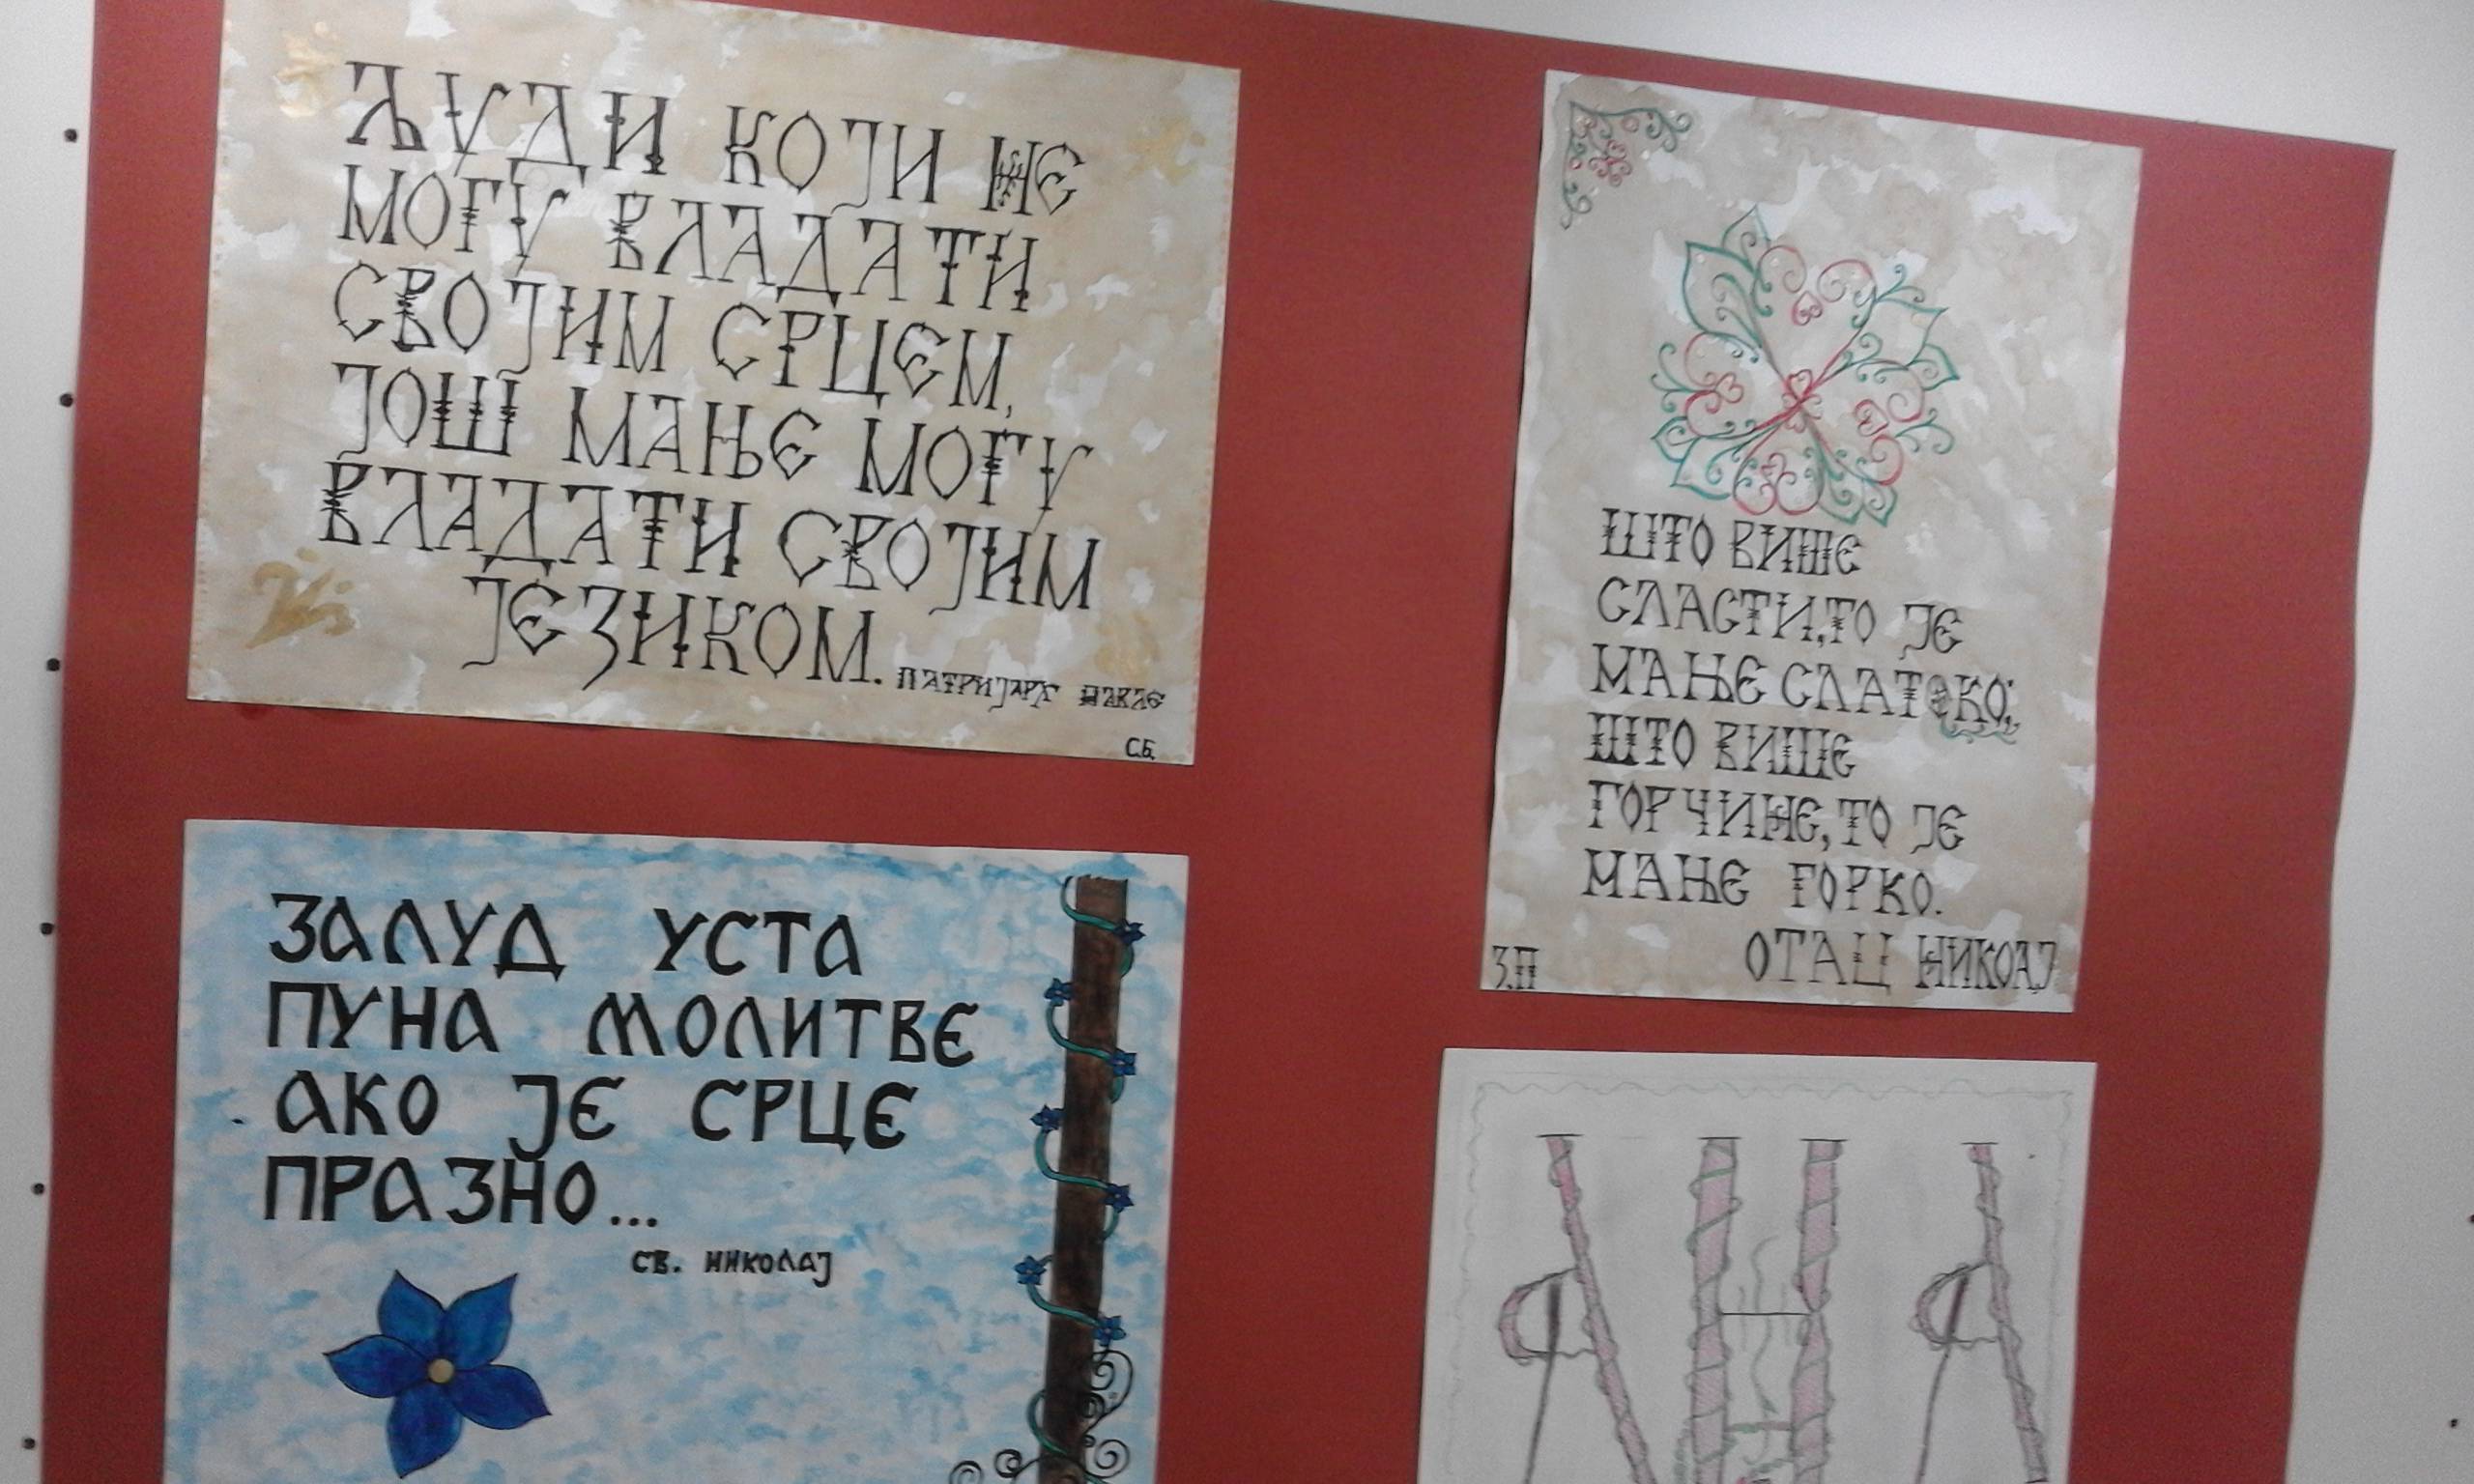 ЉУДИ КОЈИ НЕ
МОГУ ВЛАДАТИ
СВОЈИМ СРЦЕМ,
ЈОШ МАЊЕ МОГУ
ВЛАДАТИ СВОЈИМ
ЈЕЗИКОМ.
ПАТРИЈАРХ ПАВЛЕ
С.Б.
ШТО ВИШЕ
СЛАСТИ,ТО ЈЕ
МАЊЕ СЛАТКО;
ШТО ВИШЕ
ГОРЧИНЕ,ТО ЈЕ
МАЊЕ ГОРКО.
ОТАЦ НИКОЛАЈ
З.П
ЗАЛУД УСТА
ПУНА МОЛИТВЕ
АКО ЈЕ СРЦЕ
ПРАЗНО...
СВ. НИКОЛАЈ
АНА